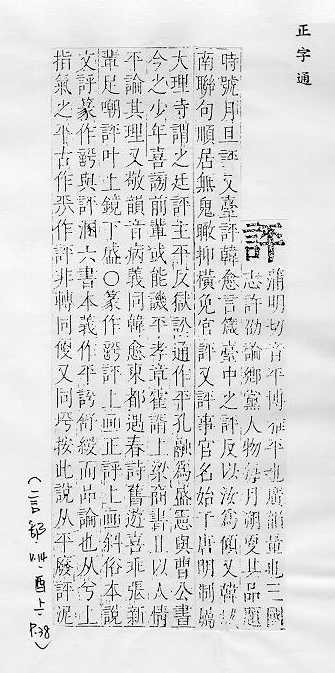 正字通
評
蒲明切音平博雅平也廣韻量也三國
志許劭論鄉黨人物每月朔更其品題
時號月旦評又臺評韓愈言箴臺中之評反以汝爲傾又韓
南聯句順居無鬼瞰抑橫免官評又評事官名始于唐明制
大理寺謂之廷評主平反獄訟通作平孔融爲盛憲與曹公書
今之少年喜謗前輩或能譏平孝章霍諝上梁商書且以人情
平論其理又敬韻音病義同韓愈東都遇春詩舊遊喜乖張新
輩足嘲評叶上鏡下盛○篆作評上画正評上画斜俗本說
文評篆作與評溷六書本義作平紓緩而品論也从兮上
指氣之平古作作評非轉同又同按此說从平廢評泥
(言部 酉上 P.38)